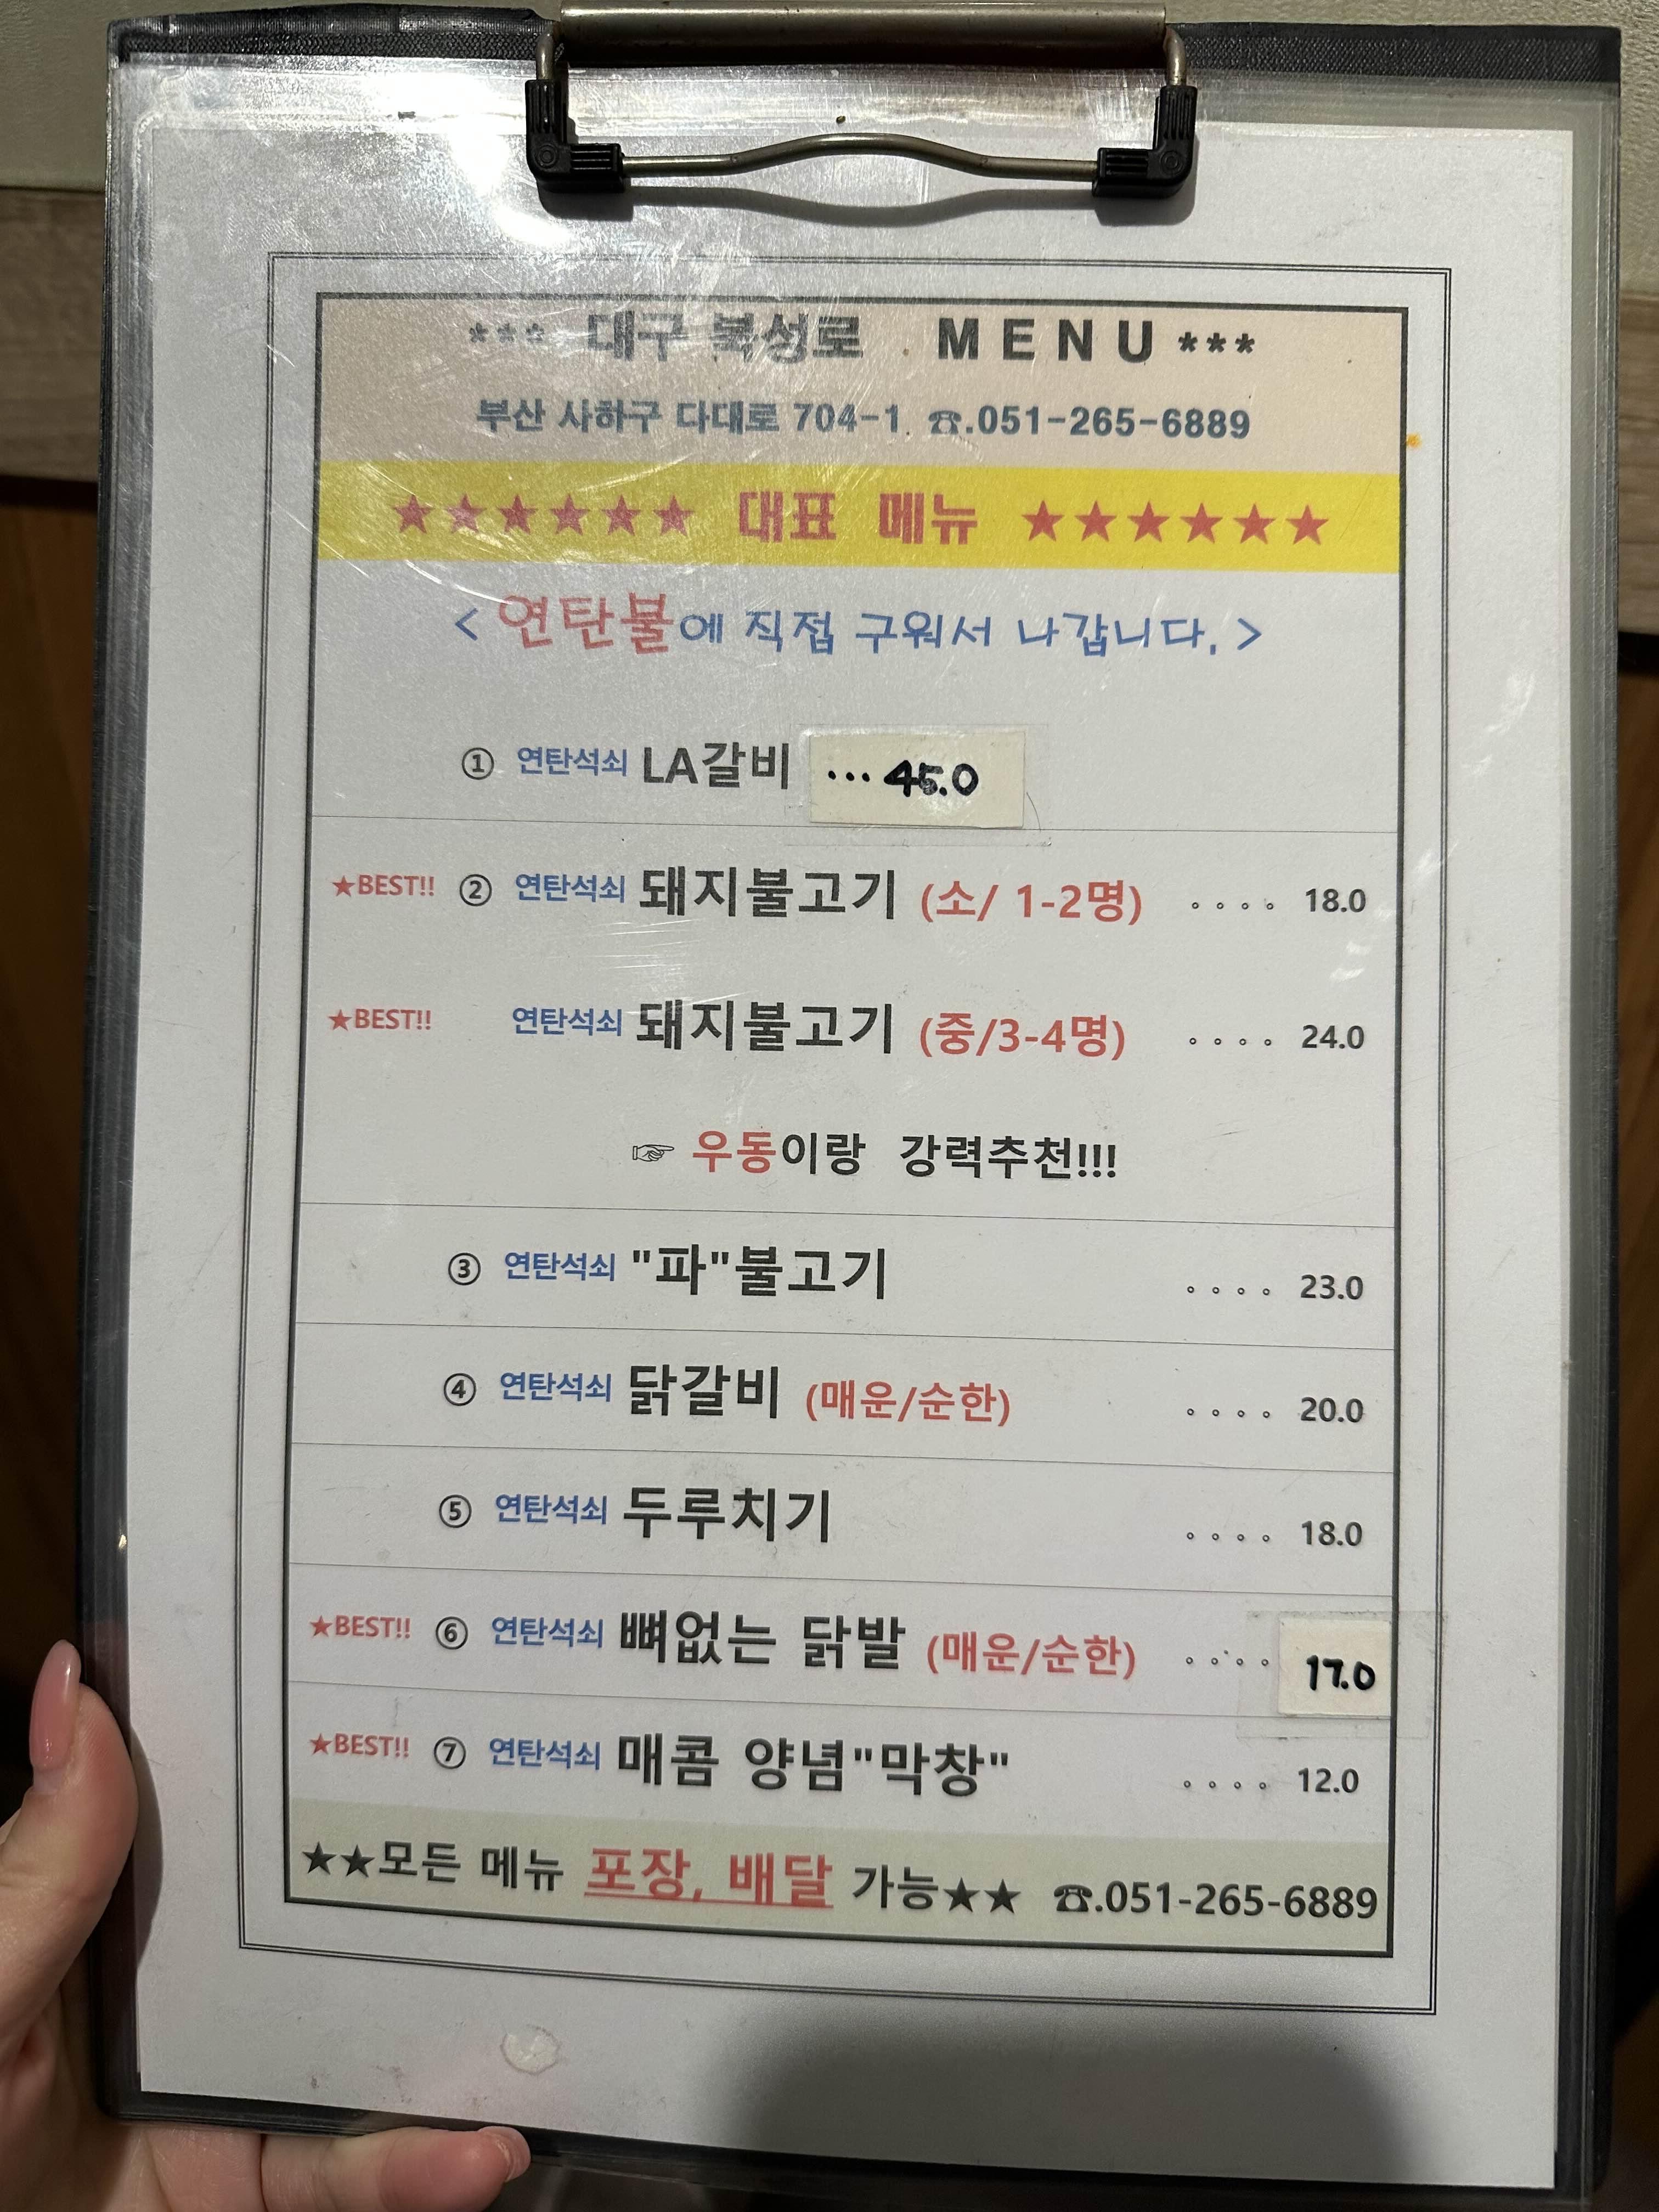 *** 대구 북성로 MENU ***
부산 사하구 다대로 704-1 ☎.051-265-6889
★★★★★★ 대표 메뉴 ★★★★★★
< 연탄불에 직접 구워서 나갑니다. >
① 연탄석쇠 LA갈비 ... 45.0
★BEST!! ② 연탄석쇠 돼지불고기 (소/ 1-2명) 。。。。 18.0
★BEST!! 연탄석쇠 돼지불고기 (중/3-4명) 。。。。 24.0
☞ 우동이랑 강력추천!!!
③ 연탄석쇠 "파"불고기 。。。。 23.0
④ 연탄석쇠 닭갈비 (매운/순한) 。。。。 20.0
⑤ 연탄석쇠 두루치기 。。。。 18.0
★BEST!! ⑥ 연탄석쇠 뼈없는 닭발 (매운/순한) 。。。。 17.0
★BEST!! ⑦ 연탄석쇠 매콤 양념"막창" 。。。。 12.0
★★모든 메뉴 포장, 배달 가능★★ ☎.051-265-6889